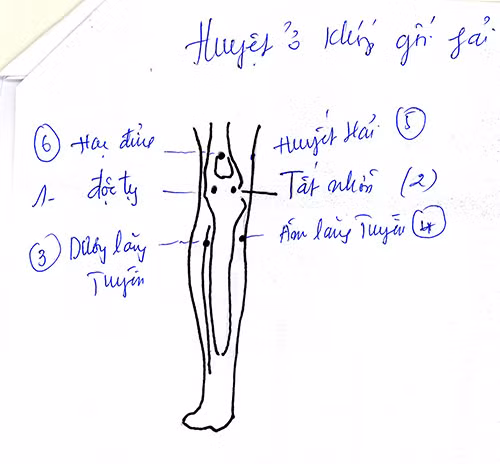 Huyệt ở khớp gối phải
⑥ Hạc đỉnh
Huyết Hải ⑤
1- độc tỵ
Tất nhãn (2)
③ Dương lăng Tuyền
Âm lăng Tuyền ④